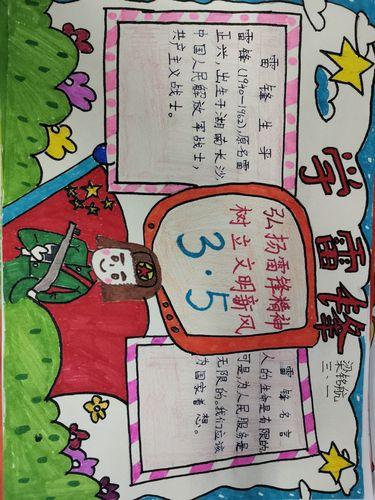 学雷锋
梁铭航
三、一
雷锋生平
雷锋(1940-1962),原名雷
正兴,出生于湖南长沙,
中国人民解放军战士,
共产主义战士。
弘扬雷锋精神
树立文明新风
3·5
雷锋名言
人的生命是有限的
可是为人民服务是
无限的。我们应该
为国家着想。